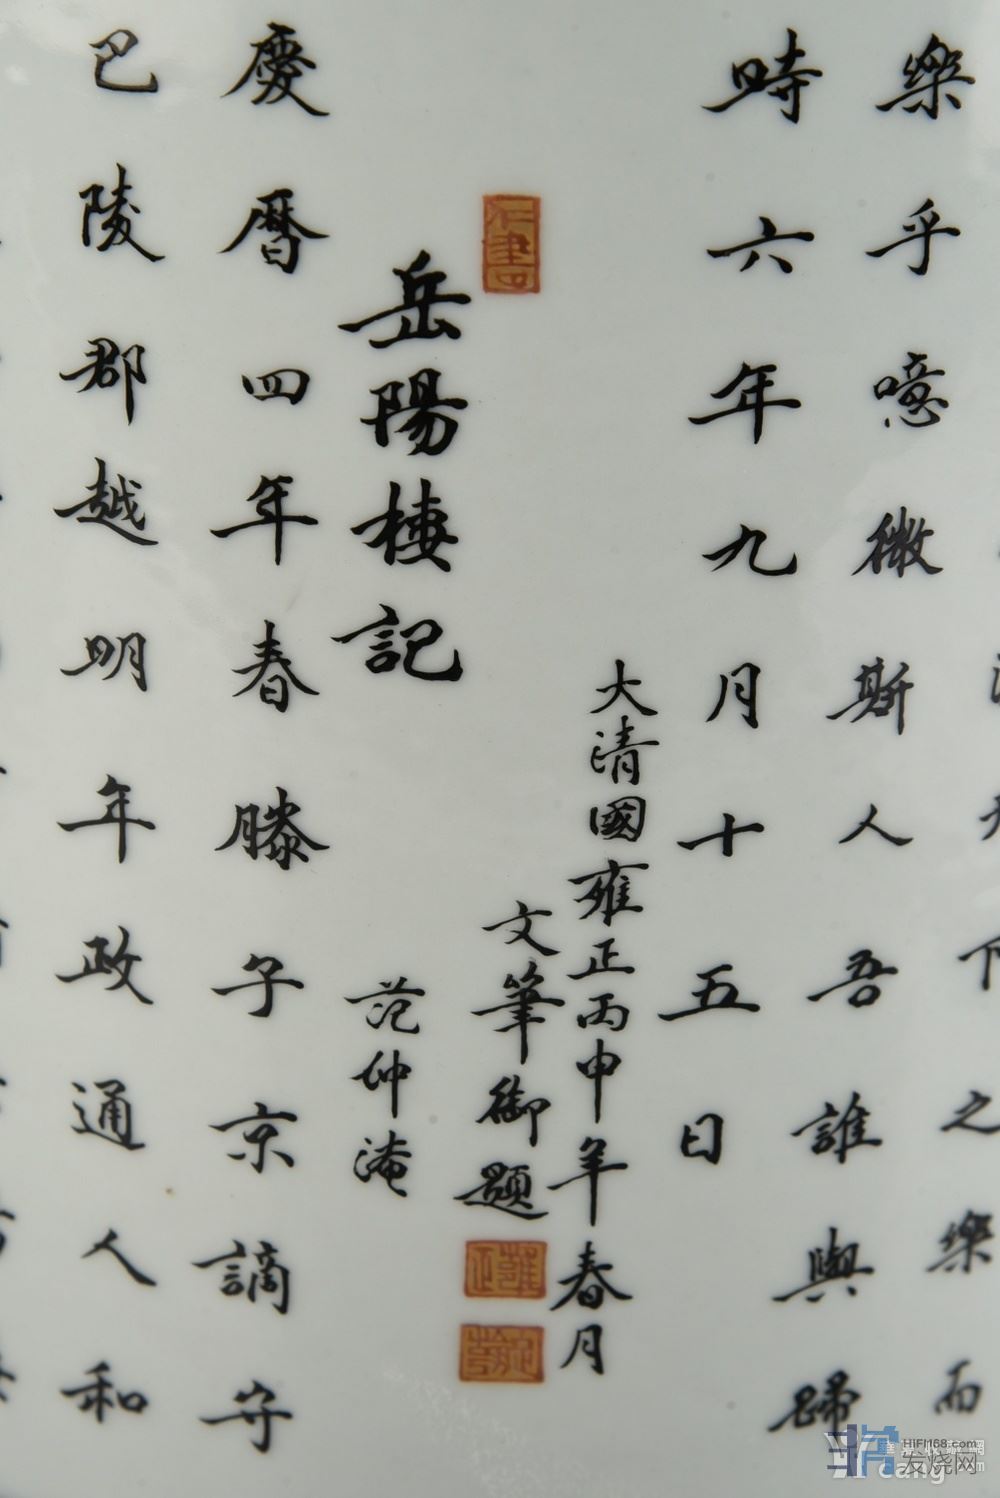 下之樂而
樂乎噫微斯人吾誰與歸
時六年九月十五日
大清國雍正丙申年春月
文筆御題
雍正
岳陽樓記
范仲淹
慶曆四年春滕子京謫守
巴陵郡越明年政通人和
HIFI168.com
发烧网